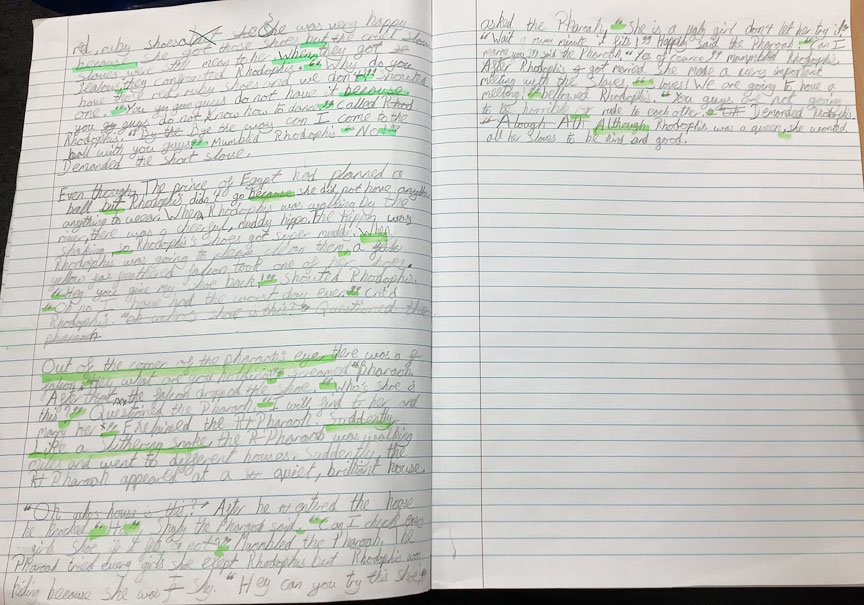 red, ruby shoes She was very happy
because she got those shoes but the cruel
slaves were mean to her. When they got
Jealous, they confronted Rhodophis. "Why do you
have red ruby shoes and we don't!" Shouted
one. "You guys do not have it because
you guys do not know how to dance" called Rhod
Rhodophis. "By the Bye the way can I come to the
ball with you guys" Mumbled Rhodophis "No!"
Demanded the short slave.
Even though, The prince of Egypt had planned a
ball but Rhodophis didn't go because she did not have anything
anything to wear. When, Rhodophis was walking by the
river, there was a cheerful, muddy hippo. the hippo was
so Rhodophis's shoes got super muddy. When
Rhodophis was going to clean them, a
yellow falcon took one of her shoes.
"Hey you give my shoe back!" Shouted Rhodophis.
"Oh no I have had the worst day ever" Cried
Rhodophis. "oh who's shoe is this?" Questioned the
pharaoh.
Out of the corner of the pharaoh's eye, there was a
falcon. "Hey what are you" screamed pharaoh
After that, the falcon droped the shoe. "Who's shoe is
this?" Questioned the Pharaoh. "I will find to her and
marry her" Exclaimed the Pharaoh. Suddently
Like a slithering snake, the Pharaoh was walking
miles and went to different houses. Suddently, the
Pharaoh appeared at a quiet, brilliant house.
"Oh who's house is this?" After he entired the house
he knocked. Shyly the Pharaoh said, "Can I check
girls shoe if it fits or not?" Mumbled the Pharaoh. The
Pharoah tried every girls shoe exept Rhodophis but Rhodophis was
hiding because she was shy. "Hey can you try this shoe"
asked the Pharoah, "She is a ugly girl don't let her try it"
"Wait a minute it fits!" Happily said the Pharoah "Can I
marry you" said the Pharoah. "Yes of cource" mumbled Rhodophis.
After Rhodophis got married She made a very important
meeting with the Slaves. "Slaves! We are going to have a
meeting," bellowed Rhodophis. "You guys are not going
to be horrible or rude to each other." Demanded Rhodophis
Alough Alth Although Rhodophis was a queen, she wanted
all her slaves to be kind and good.